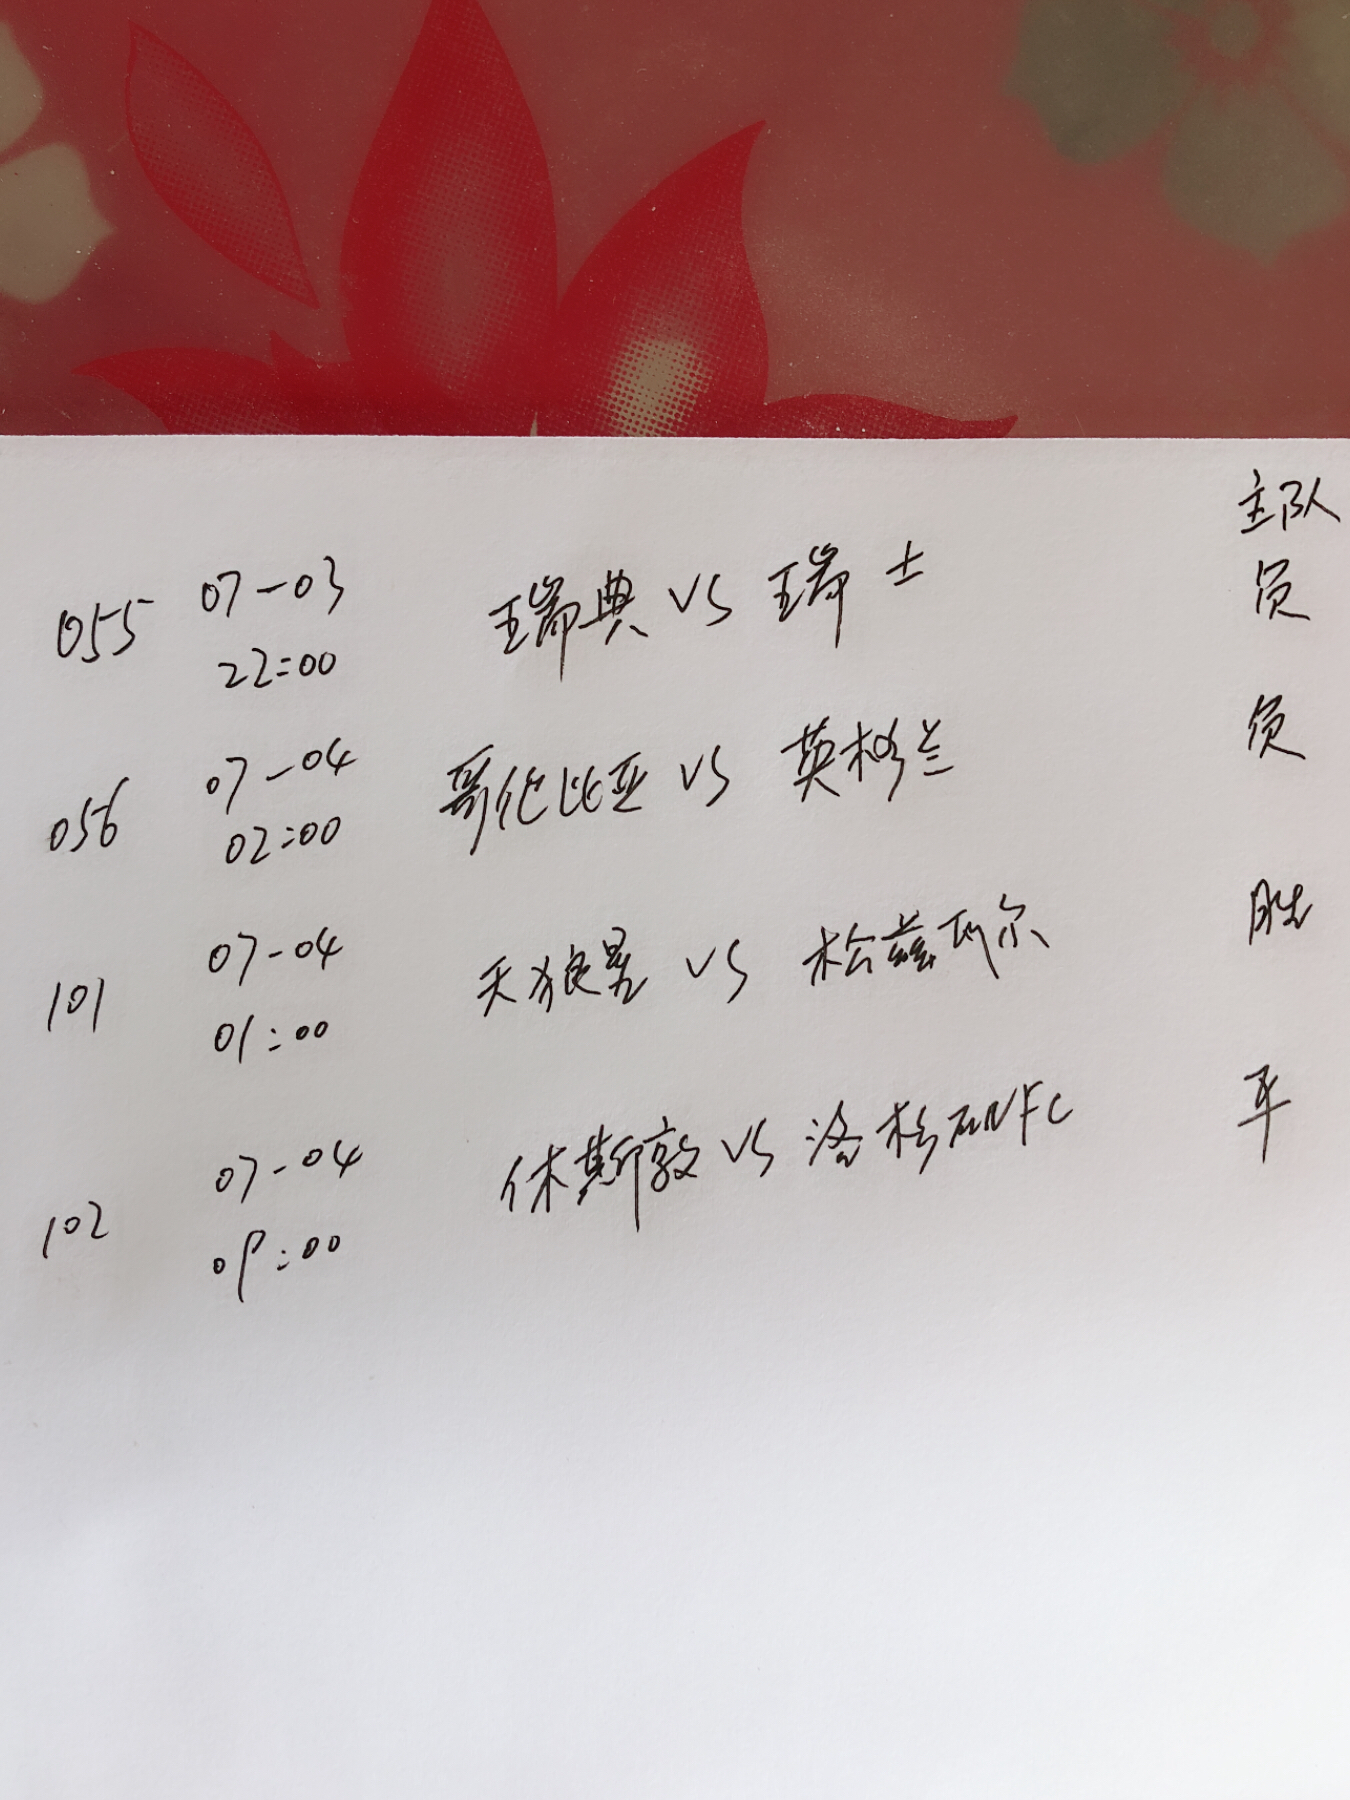 主队
055 07-03 瑞典 VS 瑞士 负
22:00
056 07-04 哥伦比亚 VS 英格兰 负
02:00
101 07-04 天狼星 VS 松兹瓦尔 胜
01:00
102 07-04 休斯敦 VS 洛杉矶FC 平
09:00